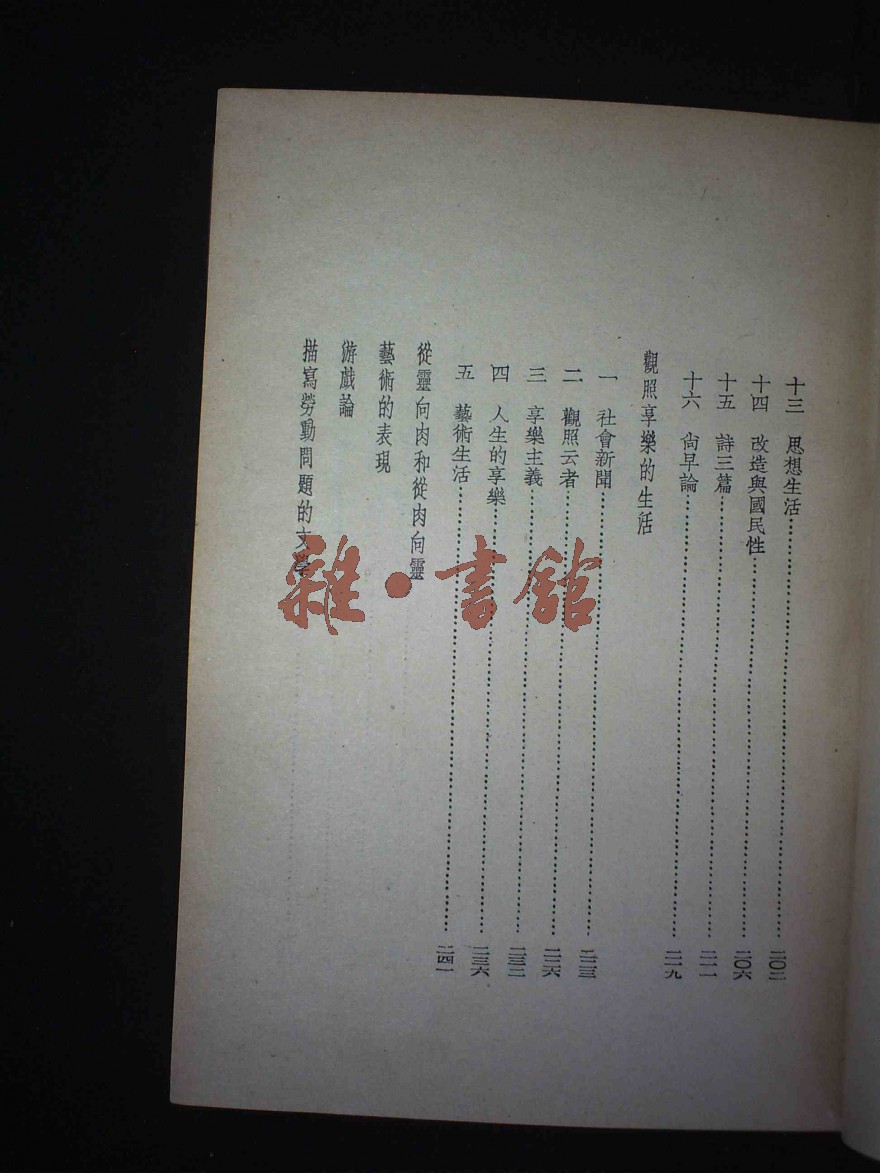 十三　思想生活……二〇二
十四　改造與國民性……二〇六
十五　詩三篇……二一一
十六　尙早論……二一九
觀照享樂的生活
一　社會新聞……二二三
二　觀照云者……二二六
三　享樂主義……二三二
四　人生的享樂……二三六
五　藝術生活……二四一
從靈向肉和從肉向靈
藝術的表現
游戲論
描寫勞動問題的文學
雜·書館